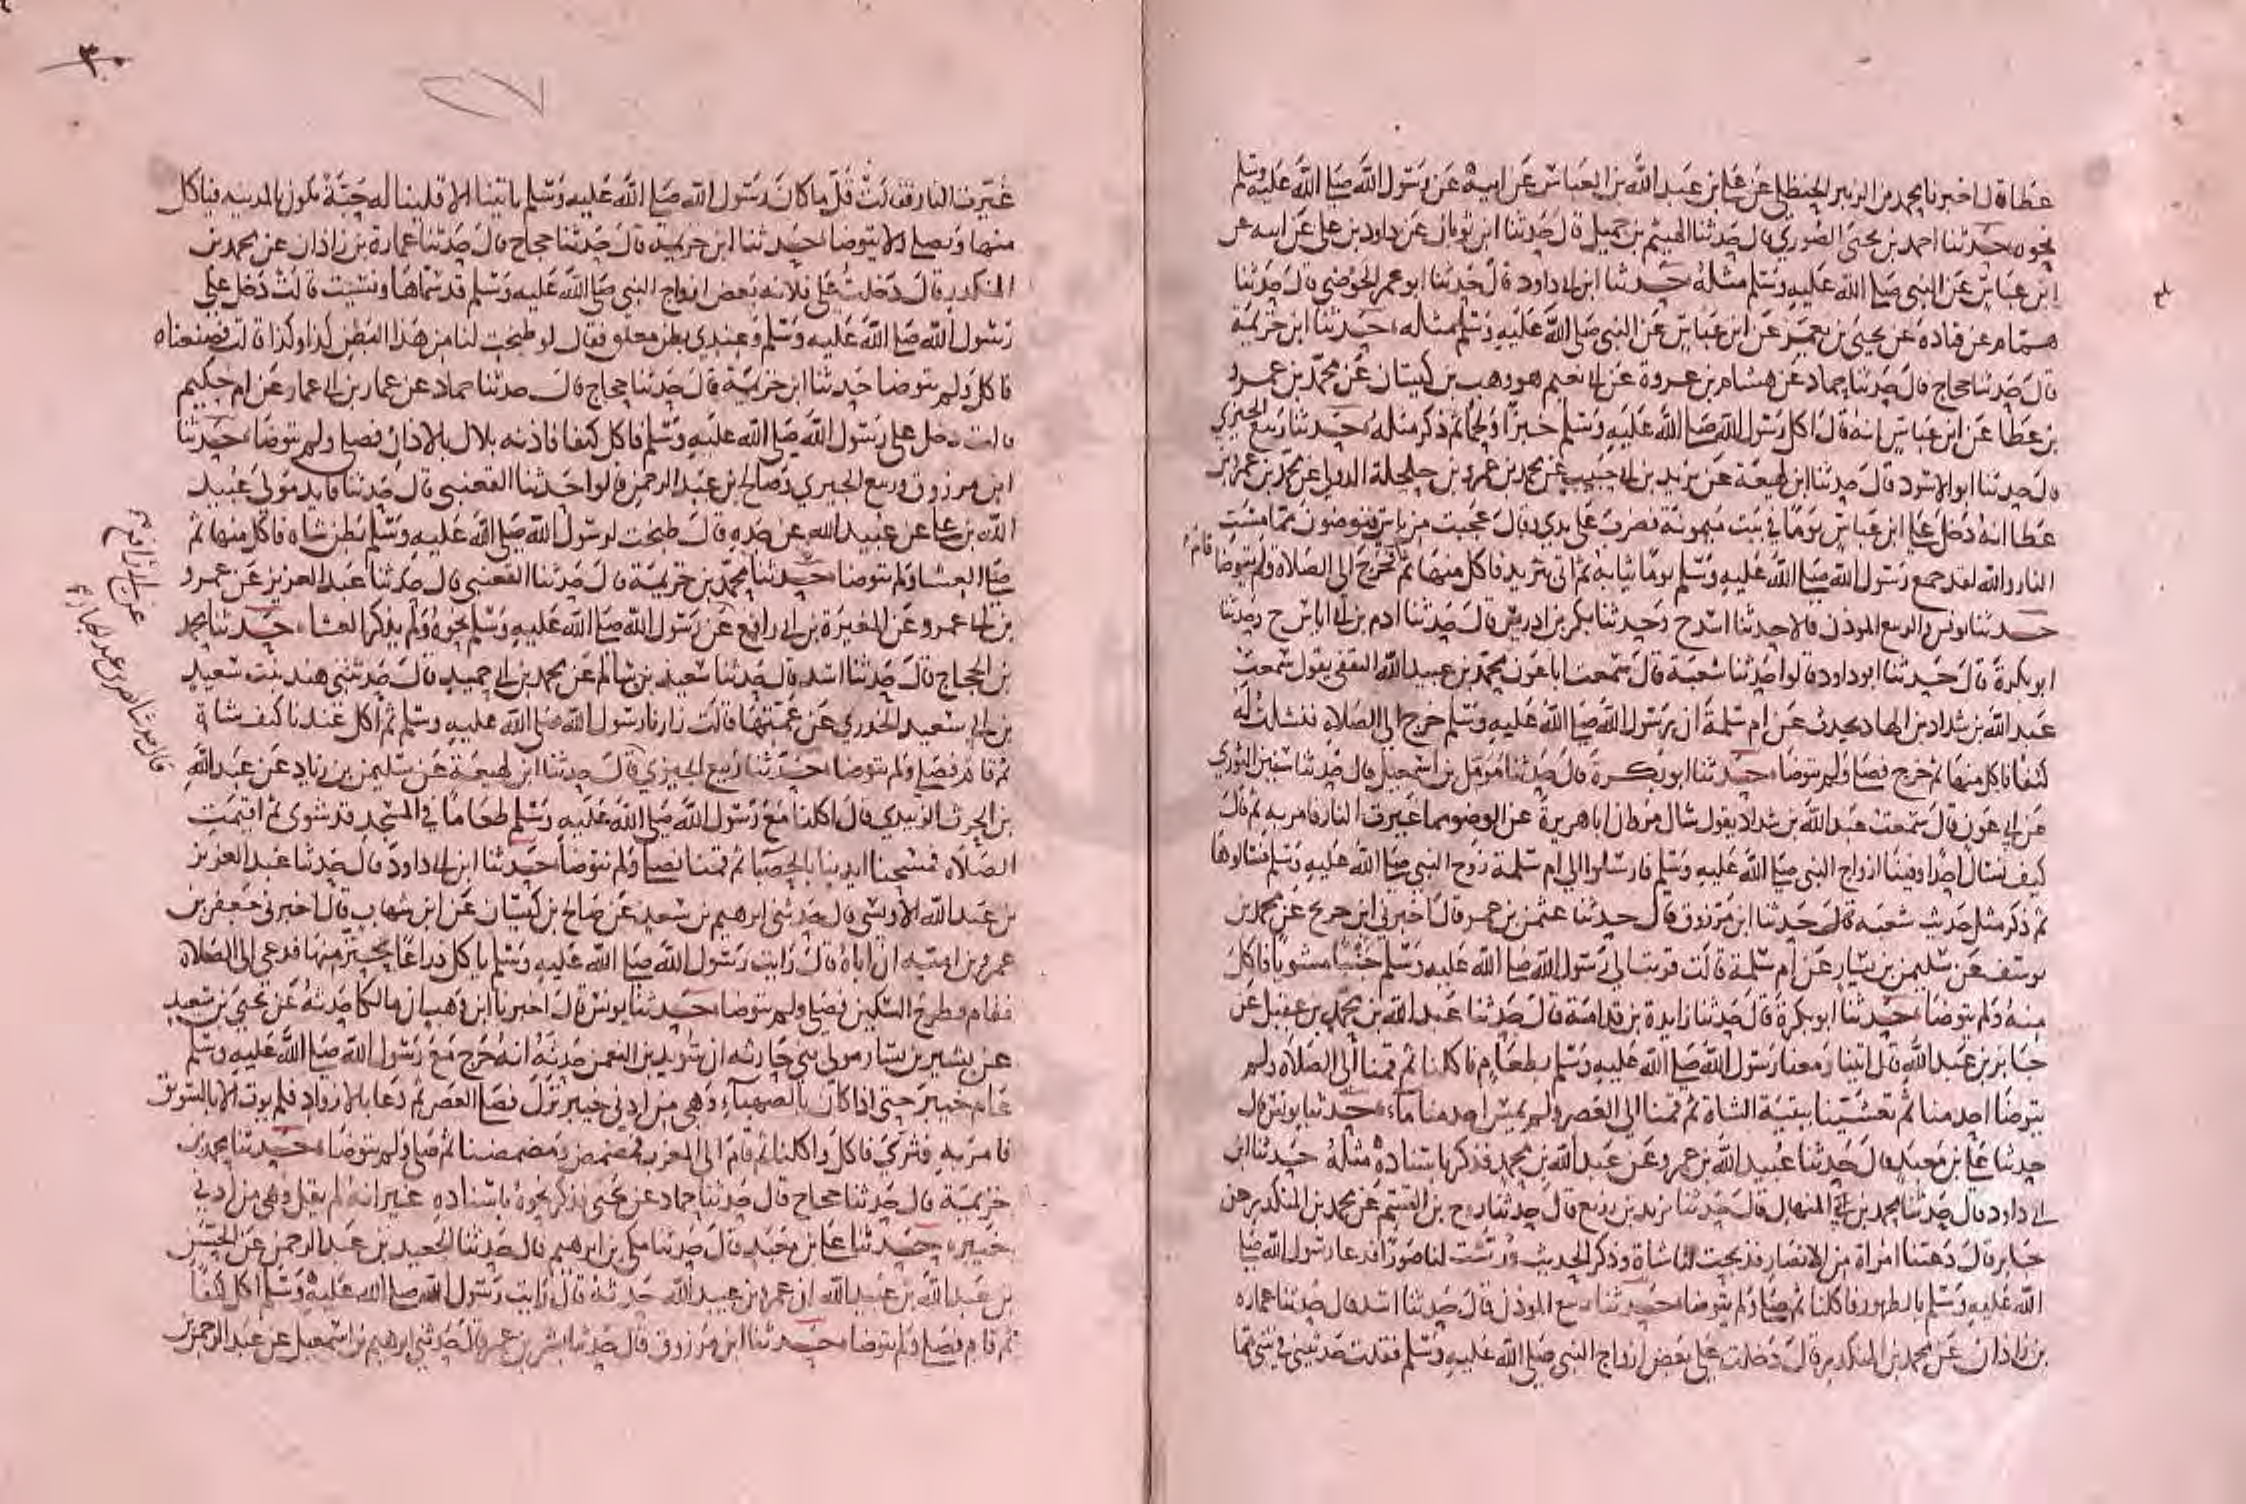 عطا قال اخبرنا محمد بن الزبير الحنظلي عن علي بن عبد الله بن العباس عن ابيه عن رسول الله صلى الله عليه وسلم
نحوه حدثنا احمد بن يحيى الصوري قال حدثنا الهيثم بن جميل قال حدثنا ابن ثوبان عن داود بن علي عن ابيه عن
ابن عباس عن النبي صلى الله عليه وسلم مثله حدثنا ابن ابي داود قال حدثنا ابو عمر الحوضي قال حدثنا
همام عن قتادة عن يحيى بن يعمر عن ابن عباس عن النبي صلى الله عليه وسلم مثله حدثنا ابن خزيمة
قال حدثنا حجاج قال حدثنا حماد عن هشام بن عروة عن ابي نعيم هو وهب بن كيسان عن محمد بن عمرو
بن عطا عن ابن عباس انه قال اكل رسول الله صلى الله عليه وسلم خبزا ولحما ثم ذكر مثله حدثنا ربيع الجيزي
قال حدثنا ابو الاسود قال حدثنا ابن لهيعة عن يزيد بن ابي حبيب عن محمد بن عمرو بن حلحلة الدولي عن محمد بن عمرو بن
عطا انه دخل على ابن عباس يوما في بيت ميمونة فضرب على يدي وقال عجبت من ناس يتوضون مما مست
النار والله لقد جمع رسول الله صلى الله عليه وسلم يوما ثيابه ثم اتي بثريد فاكل منها ثم خرج الى الصلاة ولم يتوضا
حدثنا يونس والربيع الموذن قالا حدثنا اسد ح وحدثنا بكر بن ادريس قال حدثنا ادم بن ابي اياس ح وحدثنا
ابو بكرة قال حدثنا ابو داود قالوا حدثنا شعبة قال سمعت ابا عون محمد بن عبيد الله الثقفي يقول سمعت
عبد الله بن شداد بن الهاد يحدث عن ام سلمة ان رسول الله صلى الله عليه وسلم خرج الى الصلاة فنشلت له
كتفا فاكل منها ثم خرج فصلى ولم يتوضا حدثنا ابو بكرة قال حدثنا مومل بن اسمعيل قال حدثنا سفين الثوري
عن ابي عون قال سمعت عبد الله بن شداد يقول سال مروان ابا هريرة عن الوضو مما غيرت النار فامر به ثم قال
كيف نسال احدا وفينا ازواج النبي صلى الله عليه وسلم فارسلوا الى ام سلمة زوج النبي صلى الله عليه وسلم فسالوها
ثم ذكر مثل حديث شعبة حدثنا ابن مرزوق قال حدثنا عثمن بن عمر قال اخبرني ابن جريج عن محمد بن
يوسف عن سليمن بن يسار عن ام سلمة قالت قربت الى رسول الله صلى الله عليه وسلم جنبا مشويا فاكل
منه ولم يتوضا حدثنا ابو بكرة قال حدثنا زايدة بن قدامة قال حدثنا عبد الله بن محمد بن عقيل عن
جابر بن عبد الله قال اتينا ومعنا رسول الله صلى الله عليه وسلم بطعام فاكلنا ثم قمنا الى الصلاة ولم
يتوضا احد منا ثم تعشينا ببقية الشاة ثم قمنا الى العصر ولم يمس احد منا ماء حدثنا يونس قال
حدثنا علي بن معبد قال حدثنا عبيد الله بن عمرو عن عبد الله بن محمد فذكر باسناده مثله حدثنا ابن
ابي داود قال حدثنا محمد بن المنهال قال حدثنا يزيد بن زريع قال حدثنا روح بن القسم عن محمد بن المنكدر عن
جابر قال دعتنا امراة من الانصار فذبحت لنا شاة وذكر الحديث ورشت لنا صورا فدعا رسول الله صلى
الله عليه وسلم بالطهور فاكلنا ثم صلى ولم يتوضا حدثنا ربيع الموذن قال حدثنا اسد قال حدثنا عمارة
بن زاذان عن محمد بن المنكدر قال دخلت على بعض ازواج النبي صلى الله عليه وسلم فقلت حدثيني في شي مما
٣٠
غيرت النار فقالت قل ما كان رسول الله صلى الله عليه وسلم ياتينا الا قلينا له حبة تكون بالمدينة فياكل
منها ويصلي ولا يتوضا حدثنا ابن خزيمة قال حدثنا حجاج قال حدثنا عمارة بن زاذان عن محمد بن
المنكدر قال دخلت على فلانه بعض ازواج النبي صلى الله عليه وسلم قد سماها ونسيت قالت دخل علي
رسول الله صلى الله عليه وسلم وعندي بطن معلق فقال لو طبخت لنا من هذا البطن كذا وكذا قالت فصنعناه
فاكل ولم يتوضا حدثنا ابن خزيمة قال حدثنا حجاج قال حدثنا حماد عن عمار بن ابي عمار عن ام حكيم
قالت دخل علي رسول الله صلى الله عليه وسلم فاكل كتفا فاذنه بلال بالاذان فصلى ولم يتوضا حدثنا
ابن مرزوق وربيع الجيزي وصالح بن عبد الرحمن قالوا حدثنا القعنبي قال حدثنا فايد مولى عبيد
الله بن علي عن عبيد الله عن جده قال طبخت لرسول الله صلى الله عليه وسلم بطن شاه فاكل منها ثم
صلى العشا ولم يتوضا حدثنا محمد بن خزيمة قال حدثنا القعنبي قال حدثنا عبد العزيز عن عمرو
بن ابي عمرو عن المغيرة بن ابي رافع عن رسول الله صلى الله عليه وسلم نحوه ولم يذكر العشا حدثنا محمد
بن الحجاج قال حدثنا اسد قال حدثنا سعيد بن سالم عن محمد بن ابي حميد قال حدثتني هند بنت سعيد
بن ابي سعيد الخدري عن عمتها قالت زارنا رسول الله صلى الله عليه وسلم ثم اكل عندنا كتف شاة
ثم قام فصلى ولم يتوضا حدثنا ربيع الجيزي قال حدثنا ابن لهيعة عن سليمن بن زياد عن عبد الله
بن الحرث الزبيدي قال اكلنا مع رسول الله صلى الله عليه وسلم طعاما في المسجد قد شوى ثم اقيمت
الصلاة فمسحنا ايدينا بالحصبا ثم قمنا نصلي ولم نتوضا حدثنا ابن ابي داود قال حدثنا عبد العزيز
بن عبد الله الاويسي قال حدثني ابرهيم بن سعد عن صالح بن كيسان عن ابن شهاب قال اخبرني جعفر بن
عمرو بن امية ان اباه قال رايت رسول الله صلى الله عليه وسلم ياكل ذراعا يحتز منها فدعي الى الصلاة
فقام وطرح السكين فصلى ولم يتوضا حدثنا يونس قال اخبرنا ابن وهب ان مالكا حدثه عن يحيى بن سعيد
عن بشير بن يسار مولى بني حارثه ان سويد بن النعمن حدثه انه خرج مع رسول الله صلى الله عليه وسلم
عام خيبر حتى اذا كان بالصهباء وهي من ادنى خيبر نزل فصلى العصر ثم دعا بالازواد فلم يوت الا بالسويق
فامر به فثري فاكل واكلنا ثم قام الى المغرب فمضمض ومضمضنا ثم صلى ولم يتوضا حدثنا محمد بن
خزيمة قال حدثنا حجاج قال حدثنا حماد عن يحيى فذكر نحوه باسناده غير انه لم يقل وهي من ادنى
خيبر حدثنا علي بن معبد قال حدثنا مكي بن ابرهيم قال حدثنا الجعيد بن عبد الرحمن عن الحسن
بن عبد الله بن عبيد الله ان عمرو بن عبيد الله حدثه قال رايت رسول الله صلى الله عليه وسلم اكل كتفا
ثم قام فصلى ولم يتوضا حدثنا ابن مرزوق قال حدثنا بشر بن عمر قال حدثني ابرهيم بن اسمعيل عن عبد الرحمن بن